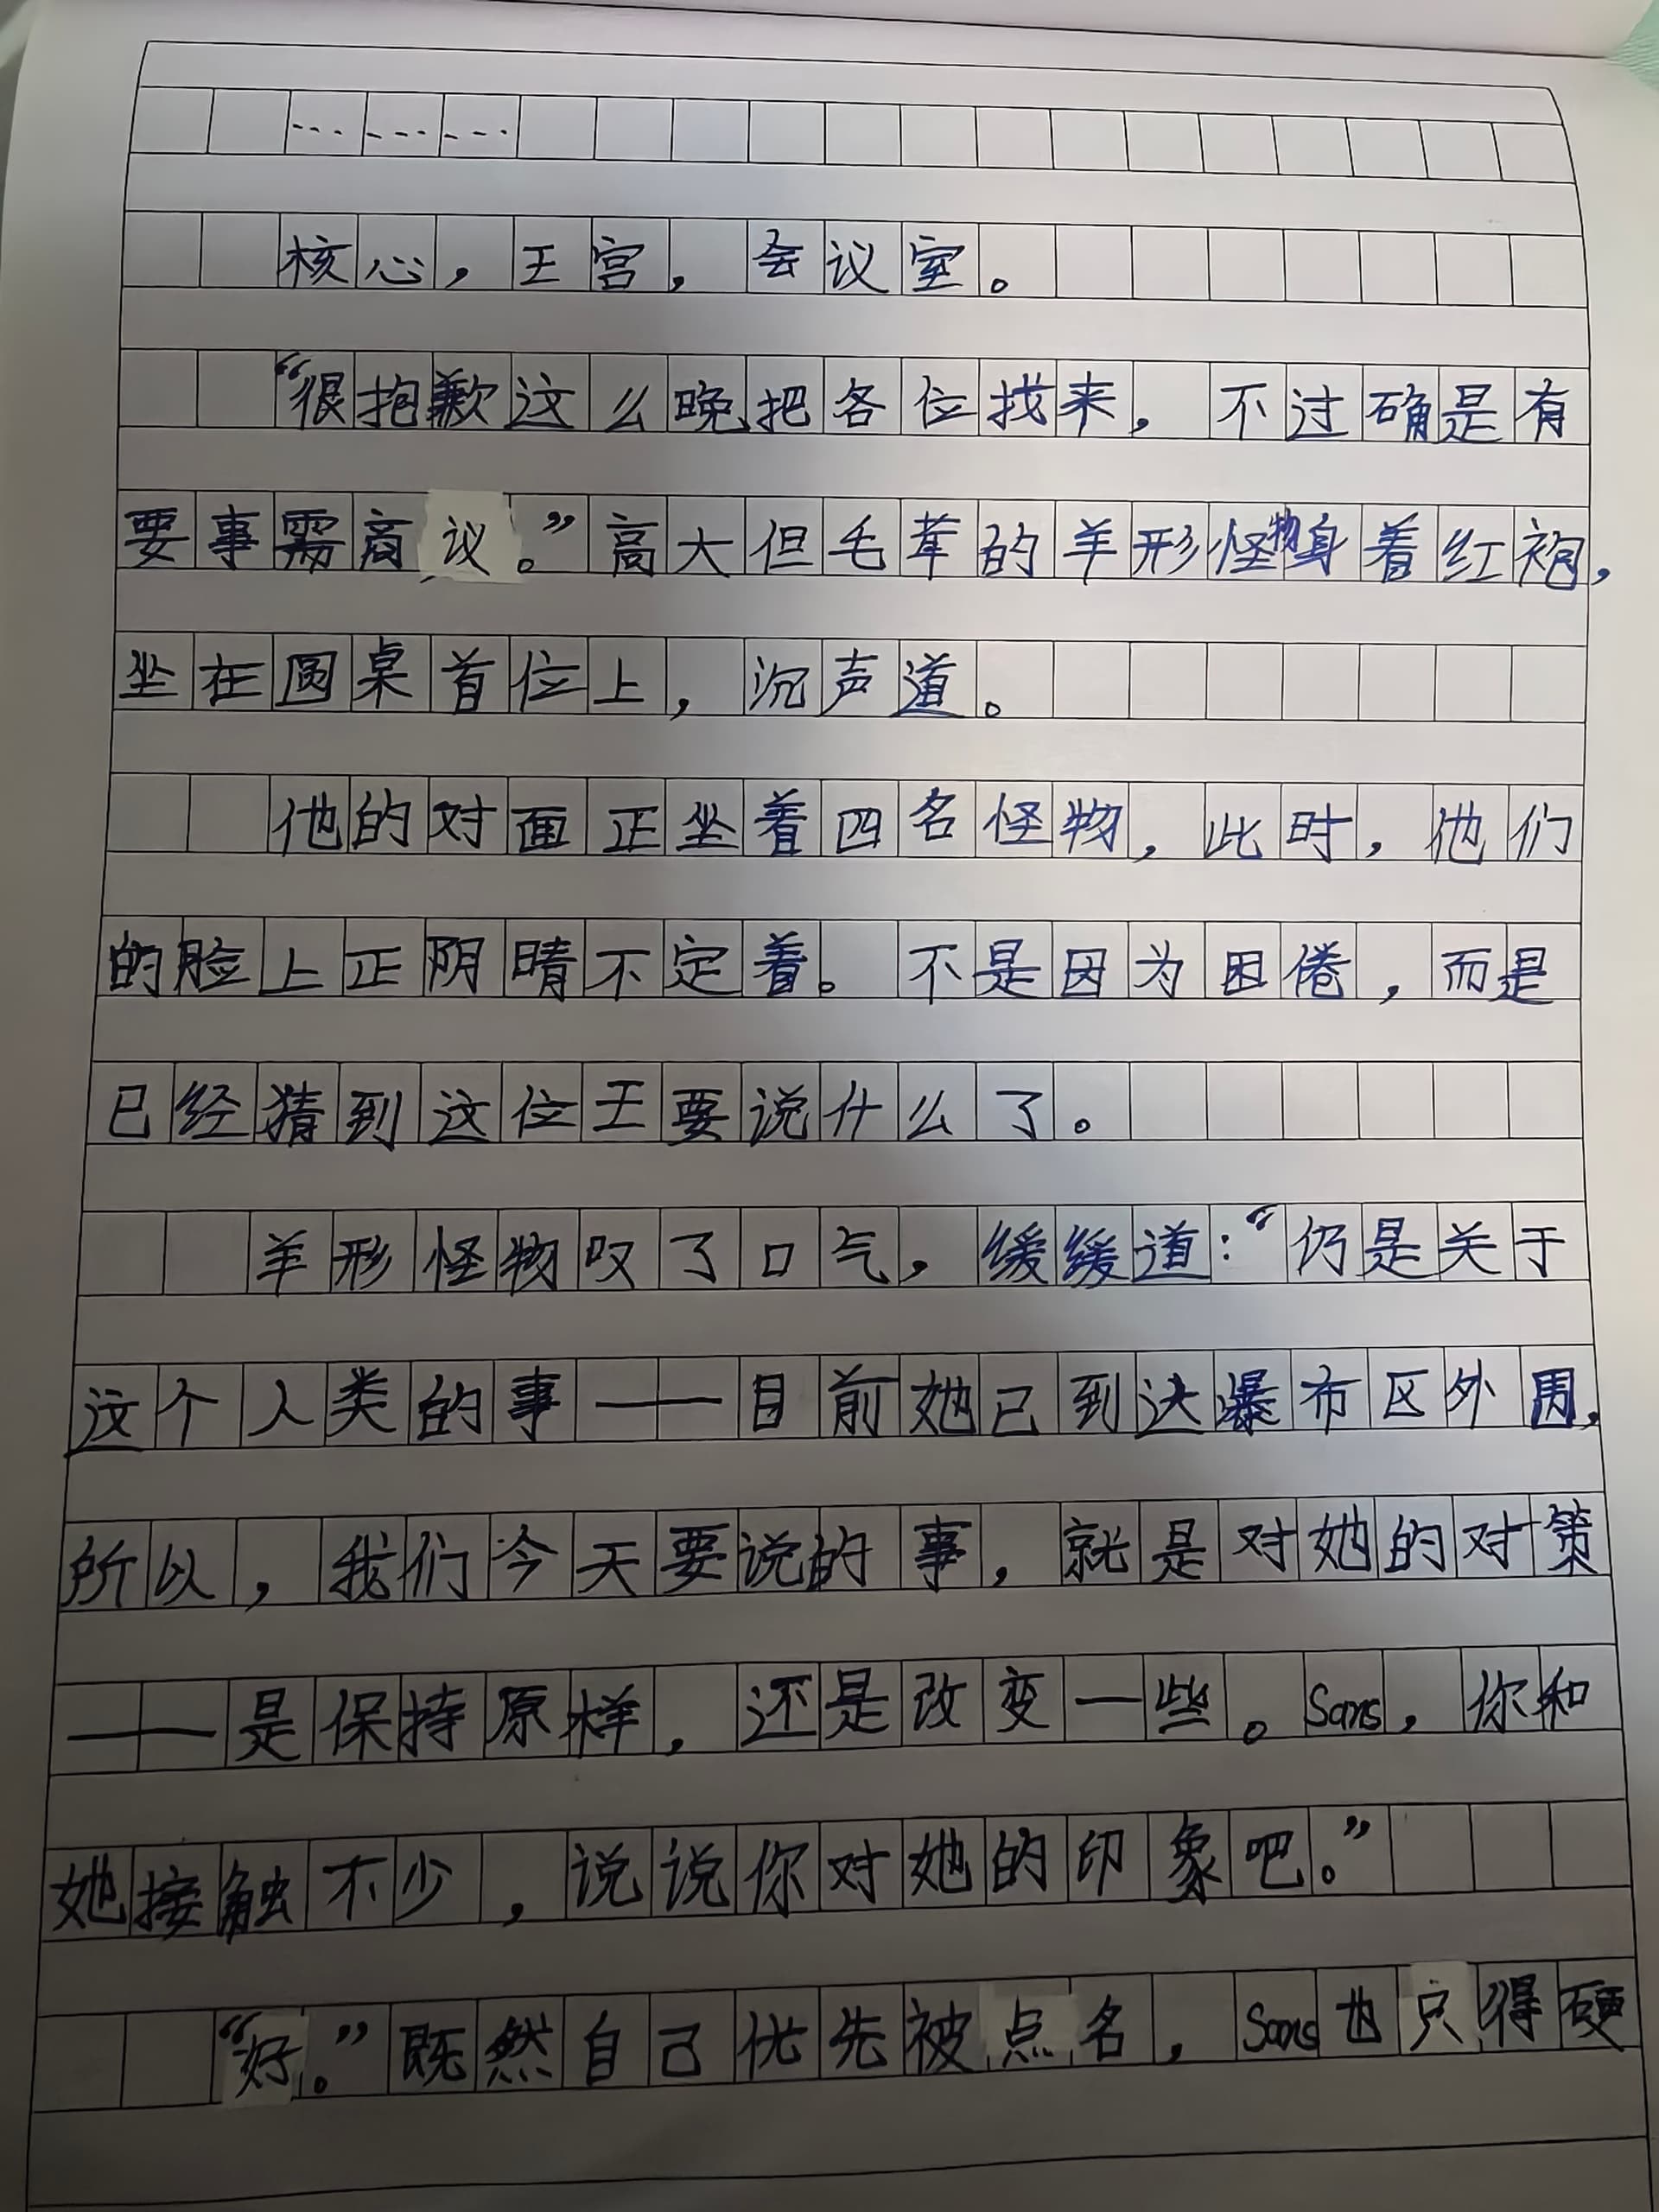 ………
核心，王宫，会议室。
“很抱歉这么晚把各位找来，不过确是有
要事需商议。”高大但毛茸的羊形怪物身着红袍，
坐在圆桌首位上，沉声道。
他的对面正坐着四名怪物，此时，他们
的脸上正阴晴不定着。不是因为困倦，而是
已经猜到这位王要说什么了。
羊形怪物叹了口气，缓缓道：“仍是关于
这个人类的事——目前她已到达瀑布区外围，
所以，我们今天要说的事，就是对她的对策
——是保持原样，还是改变一些。Sans，你和
她接触不少，说说你对她的印象吧。”
“好。”既然自己优先被点名，Sans也只得硬